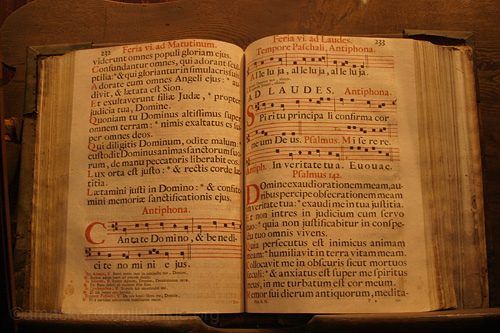 232
Feria vi. ad Matutinum.
viderunt omnes populi gloriam ejus.
Confundantur omnes, qui adorant scul-
ptilia: * & qui gloriantur in simulacris suis.
Adorate eum omnes Angeli ejus: * au-
divit, & lætata est Sion.
Et exultaverunt filiæ Judæ, * propter
judicia tua, Domine.
Quoniam tu Dominus altissimus super
omnem terram: * nimis exaltatus es su-
per omnes deos.
Qui diligitis Dominum, odite malum:*
custodit Dominus animas sanctorum suo-
rum, de manu peccatoris liberabit eos.
Lux orta est justo: * & rectis corde læ-
titia.
Lætamini justi in Domino: * & confite-
mini memoriæ sanctificationis ejus.
Antiphona.
Cantate Domino, & bene di-
cite no mi ni e jus.
Feria vi. ad Laudes.
233
Tempore Paschali, Antiphona.
Alle lu ja, alle lu ja, al le lu ja.
AD LAUDES, Antiphona.
Spi ri tu principa li confirma cor
me um De us. Psalmus. Mi se re re.
Antiph. In veritate tu a. Euouac.
Psalmus 142.
Domine exaudi orationem meam, au-
ribus percipe obsecrationem meam
in veritate tua: * exaudi me in tua justitia.
Et non intres in judicium cum servo
tuo: * quia non justificabitur in conspe-
ctu tuo omnis vivens.
Quia persecutus est inimicus animam
meam: * humiliavit in terra vitam meam.
Collocavit me in obscuris sicut mortuos
sæculi: * & anxiatus est super me spiritus
meus, in me turbatum est cor meum.
Memor fui dierum antiquorum, medita-